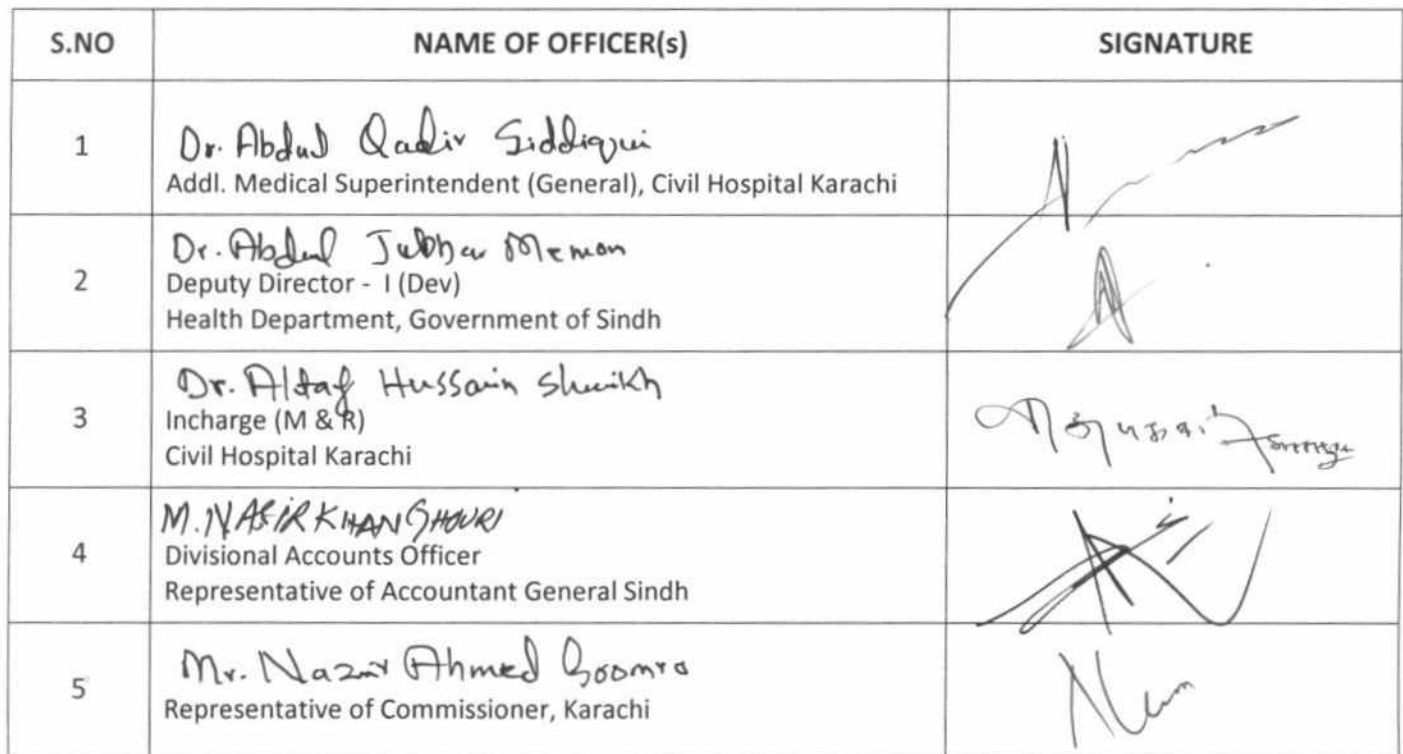 S.NO NAME OF OFFICER(s) SIGNATURE
1 Dr. Abdul Qadir Siddiqui
Addl. Medical Superintendent (General), Civil Hospital Karachi
2 Dr. Abdul Jubbar Memon
Deputy Director - I (Dev)
Health Department, Government of Sindh
3 Dr. Altaf Hussain Sheikh
Incharge (M & R)
Civil Hospital Karachi
4 M. NASIR KHAN GHOURI
Divisional Accounts Officer
Representative of Accountant General Sindh
5 Mr. Nazir Ahmed Soomro
Representative of Commissioner, Karachi